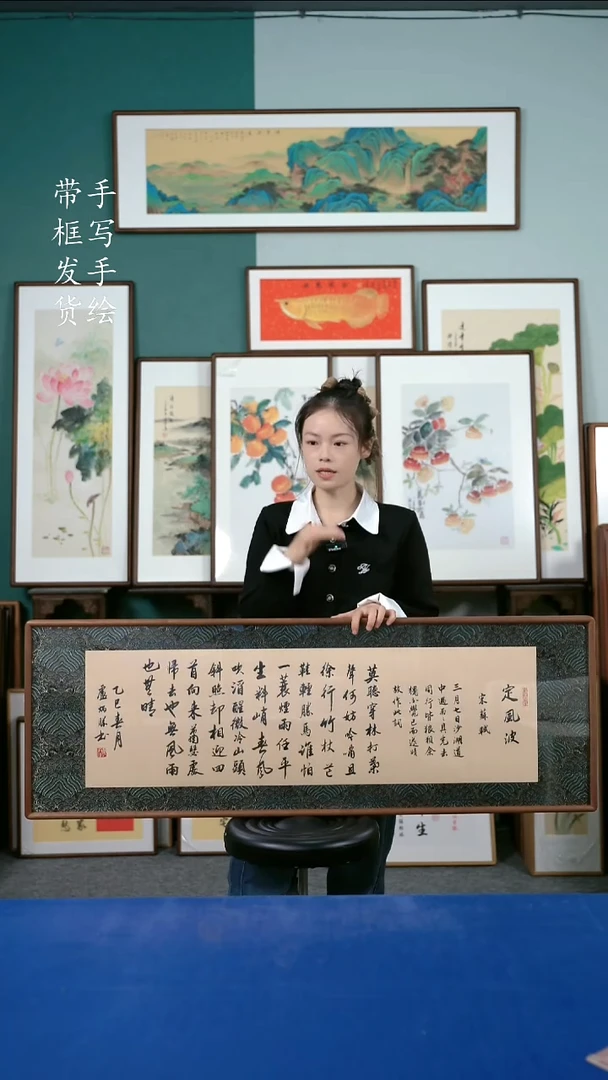 手写手绘
带框发货
定風波
宋蘇軾
三月七日沙湖道
中遇雨雨具先去
同行皆狼狽余
獨不覺已而遂晴
故作此詞
莫聽穿林打葉
聲何妨吟嘯且
徐行竹杖芒
鞋輕勝馬誰怕
一蓑煙雨任平
生料峭春風
吹酒醒微冷山頭
斜照却相迎回
首向來蕭瑟處
歸去也無風雨
也無晴
乙巳春月